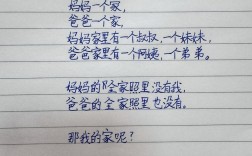 妈妈一个家，
爸爸一个家，
妈妈家里有一个叔叔，一个妹妹，
爸爸家里有一个阿姨，一个弟弟。
妈妈的全家照里没有我，
爸爸的全家照里也没有。
那我的家呢？